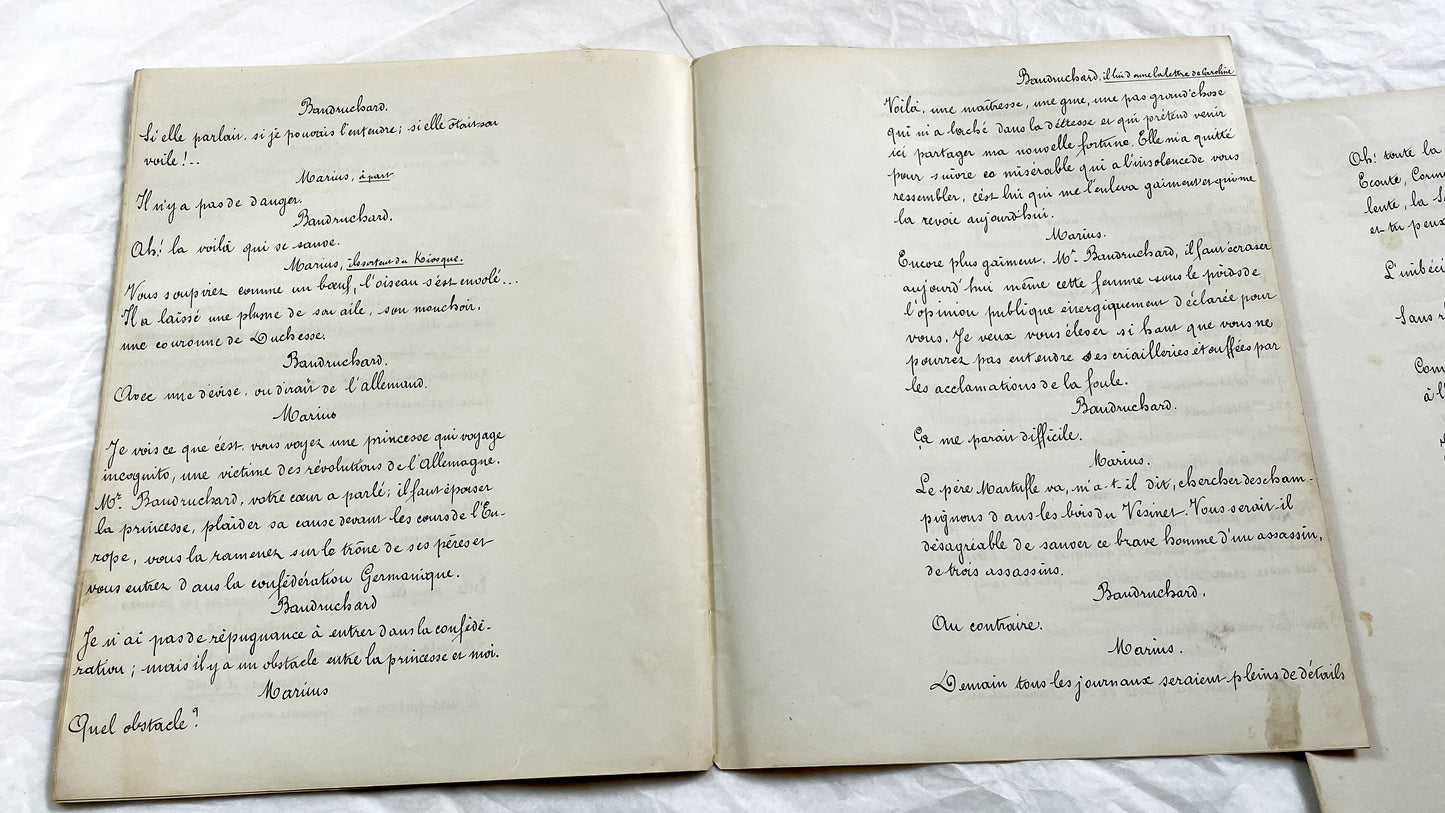 Baudruchard.
Si elle parlait, si je pouvais l'entendre; si elle ôtait son
voile!..
Marius, à part
Il n'y a pas de danger.
Baudruchard.
Ah! la voilà qui se sauve.
Marius, ils sortent du Kiosque.
Vous soupiriez comme un bœuf, l'oiseau s'est envolé...
Il a laissé une plume de son aile, son mouchoir.
une couronne de Duchesse.
Baudruchard.
Avec une devise, on dirait de l'allemand.
Marius
Je vois ce que c'est. vous voyez une princesse qui voyage
incognito, une victime des révolutions de l'Allemagne.
Mr. Baudruchard, votre cœur a parlé; il faut épouser
la princesse, plaider sa cause devant les cours de l'Eu-
rope, vous la ramenez sur le trône de ses pères et
vous entrez dans la confédération Germanique.
Baudruchard
Je n'ai pas de répugnance à entrer dans la confédé-
ration; mais il y a un obstacle entre la princesse et moi.
Marius
Quel obstacle?
Baudruchard, il lui donne la lettre de Caroline
Voilà, une maîtresse, une grue, une pas grand'chose
qui m'a lâché dans la détresse et qui prétend venir
ici partager ma nouvelle fortune. Elle m'a quitté
pour suivre ce misérable qui a l'insolence de vous
ressembler, c'est lui qui me l'enleva gaiment et qui me
la revoie aujourd'hui.
Marius.
Encore plus gaiment. Mr. Baudruchard, il faut écraser
aujourd'hui même cette femme sous le pieds de
l'opinion publique énergiquement déclarée pour
vous. Je veux vous élever si haut que vous ne
pourrez pas entendre ses criailleries étouffées par
les acclamations de la foule.
Baudruchard.
Ça me parait difficile.
Marius.
Le père Martufle va, m'a-t-il dit, chercher des cham-
pignons dans les bois du Vesinet. Vous serait-il
désagréable de sauver ce brave homme d'un assassin,
de trois assassins.
Baudruchard.
Au contraire.
Marius.
Demain tous les journaux seraient pleins de détails
Oh! toute la
Ecoute,
lente, la
et tu peux
L'imbéci
Sans
Com
à l'